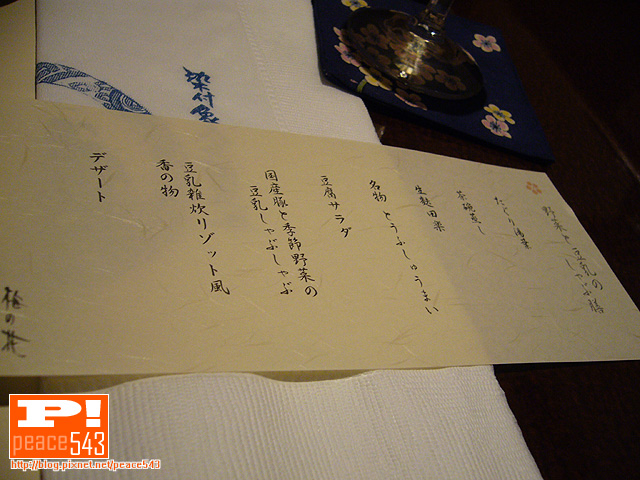 野菜と豆乳の
しゃぶ膳
たぐり湯葉
茶碗蒸し
生麩田楽
名物 とうふしゅうまい
豆腐サラダ
国産豚と季節野菜の
豆乳しゃぶしゃぶ
豆乳雑炊リゾット風
香の物
デザート
梅の花
染付
P!
peace543
http://blog.pixnet.net/peace543